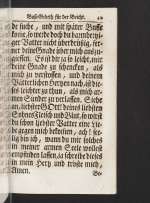 Buß-Gebeth für der Beicht. 49
de suche, und mit später Busse
komme, so werde doch du barmhertzi-
ger Vatter nicht überdrüssig, fer-
ner deine Gnade über mich aus zu
giessen. Es ist dir ja so leicht, mir
deine Gnade zu schencken, als
mich zu verstossen, und deinem
Vätterlichen Hertzen nach, ist dir
jenes leichter zu thun, als mich ar-
men Sünder zu verlassen. Siehe
an, liebster GOtt! deines liebsten
Sohnes Fleisch und Blut, so wirst
du schon liebster Vatter eine Lie-
be gegen mich bekommen, ach! se-
lig bin ich, wann du mich solches
in meiner armen Seele woltest
empfinden lassen, ja schreibe dieses
in mein Hertz und tröste mich,
Amen.
Be-